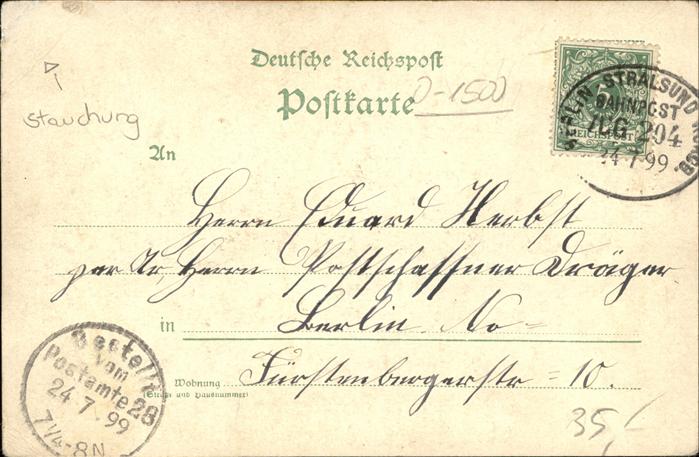 Deutsche Reichspost
Postkarte
0-1500
Stauchung
5
REICHSPOST
BERLIN STRALSUND
BAHNPOST
ZUG 294
24 7 99
An
Herrn Eduard Herbst
per Adr. Herrn Postschaffner Dräger
in Berlin. No-
Wohnung Fürstenbergerstr = 10.
(Straße und Hausnummer)
Bestellt
vom
Postamte 28
24 7. 99
7¼-8N
35,-